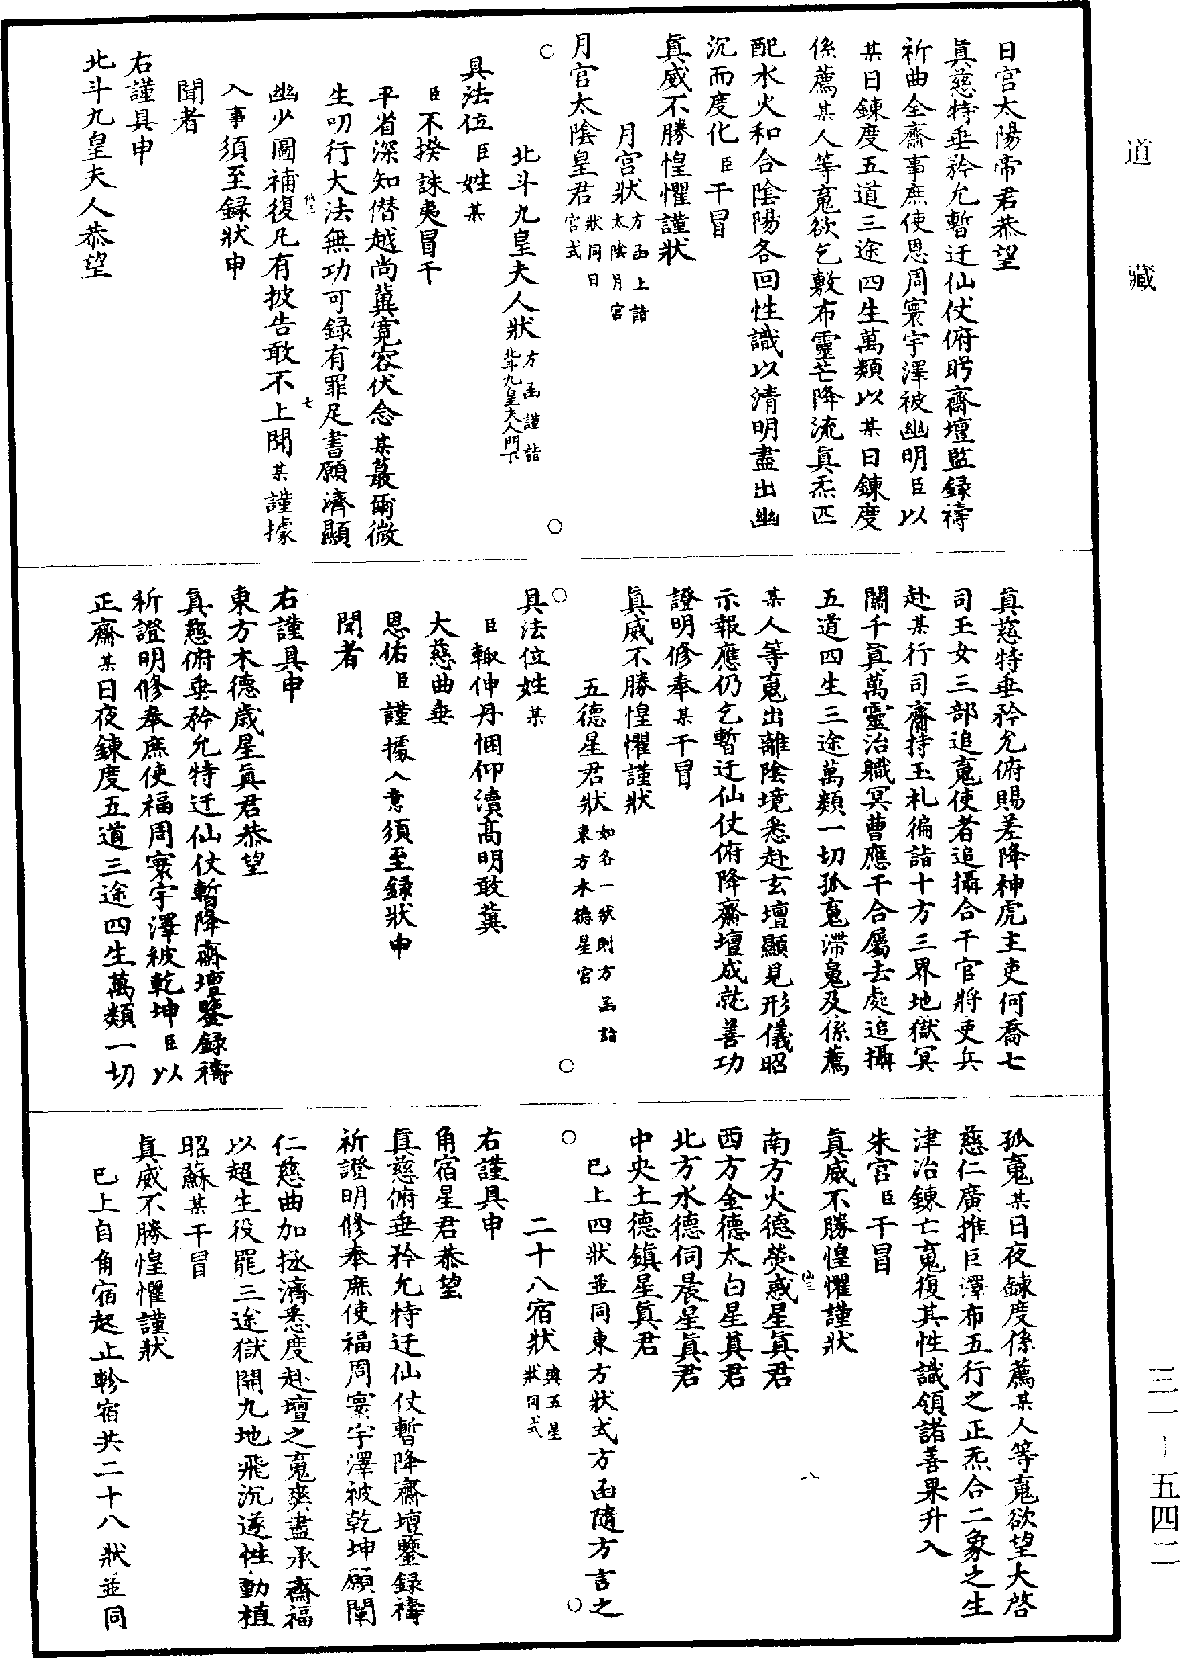 道藏
三一-五四二
日宮太陽帝君恭望
眞慈特垂矜允暫迂仙仗俯眄齋壇監録禱
祈曲全齋事庶使恩周寰宇澤被幽明臣以
某日鍊度五道三途四生萬類以某日鍊度
係薦某人等䰟欲乞敷布靈芒降流眞炁匹
配水火和合陰陽各回性識以清明盡出幽
沉而度化臣干冒
眞威不勝惶懼謹狀
月宮狀 方函上詣太陰月宮
月宮太陰皇君 狀同日宮式
北斗九皇夫人狀 方函謹詣北斗九皇夫人門下
具法位臣姓某
臣不揆誅夷冒干
平省深知僣越尚冀寛容伏念某蕞爾微
生叨行大法無功可録有罪足書願濟顯
幽少圖補復凡有披告敢不上聞某謹據
入事須至録狀申
聞者
右謹具申
北斗九皇夫人恭望
七
眞慈特垂矜允俯賜差降神虎主吏何喬七
司玉女三部追䰟使者追攝合干官將吏兵
赴某行司齋持玉札徧詣十方三界地獄冥
關千眞萬靈治職冥曹應干合屬去處追攝
五道四生三途萬類一切孤䰟滯䰟及係薦
某人等䰟出離陰境悉赴玄壇顯見形儀昭
示報應仍乞暫迂仙仗俯降齋壇成就善功
證明修奉某干冒
眞威不勝惶懼謹狀
五德星君狀 如各一狀則方函詣東方木德星宮
具法位姓某
臣輙伸丹悃仰瀆高明敢冀
大慈曲垂
恩佑臣謹據入意須至録狀申
聞者
右謹具申
東方木德歲星眞君恭望
眞慈俯垂矜允特迂仙仗暫降齋壇鑒録禱
祈證明修奉庶使福周寰宇澤被乾坤臣以
正齋某日夜鍊度五道三途四生萬類一切
孤䰟某日夜鍊度係薦某人等䰟欲望大啓
慈仁廣推巨澤布五行之正炁合二象之生
津冶鍊亡䰟復其性識領諸善果升入
朱宮臣干冒
眞威不勝惶懼謹狀
南方火德熒惑星眞君
西方金德太白星眞君
北方水德伺晨星眞君
中央土德鎮星眞君
已上四狀並同東方狀式方函隨方言之
二十八宿狀 與五星狀同式
右謹具申
角宿星君恭望
眞慈俯垂矜允特迂仙仗暫降齋壇鑒録禱
祈證明修奉庶使福周寰宇澤被乾坤願闡
仁慈曲加拯濟悉度赴壇之䰟爽盡承齋福
以超生役罷三途獄開九地飛沉遂性動植
昭蘇某干冒
眞威不勝惶懼謹狀
已上自角宿起止軫宿共二十八狀並同
八